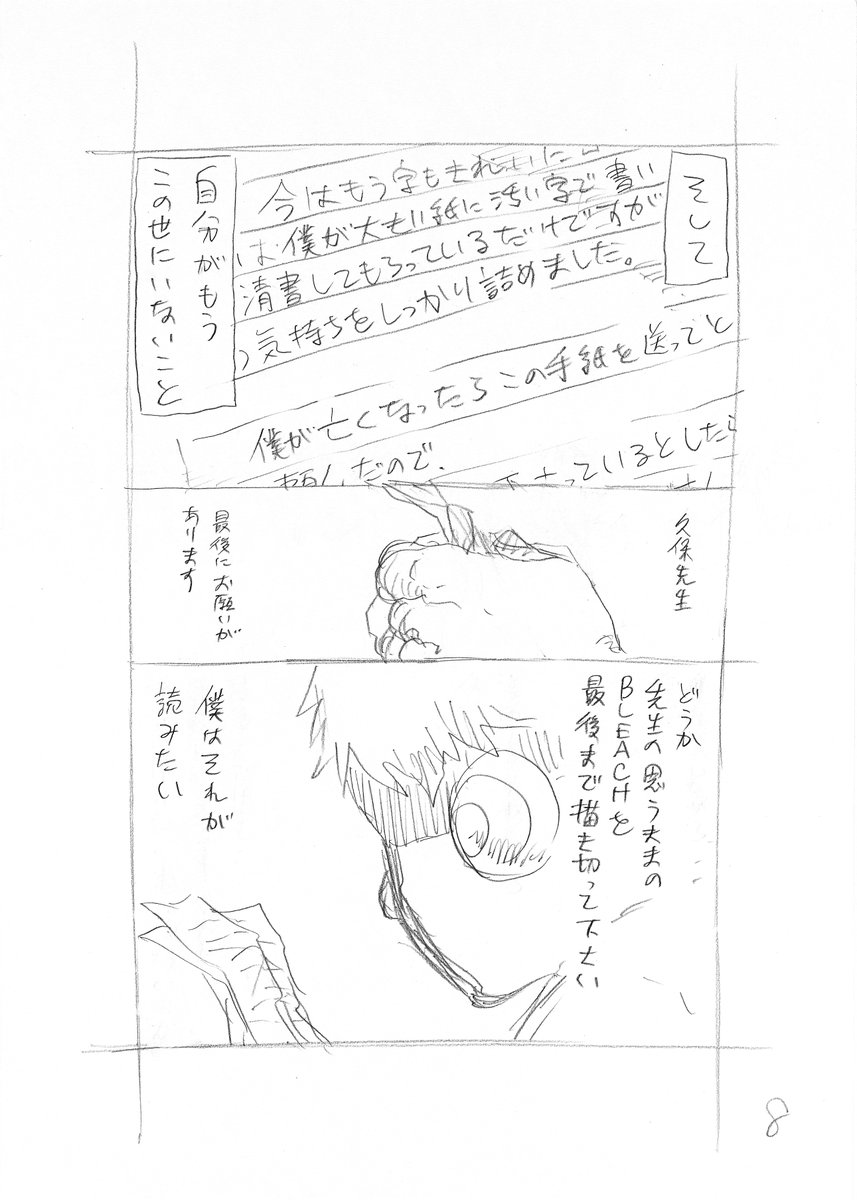 そして
今はもう字もきれいに
は僕が大きい紙に汚い字で書い
清書してもらっているだけですが
気持ちをしっかり詰めました。
僕が亡くなったらこの手紙を送ってと
頼んだので、
下さっているとしたら
自分がもう
この世にいないこと
久保先生
最後にお願いが
あります
どうか
先生の思うままの
BLEACHを
最後まで描き切って下さい
僕はそれが
読みたい
8